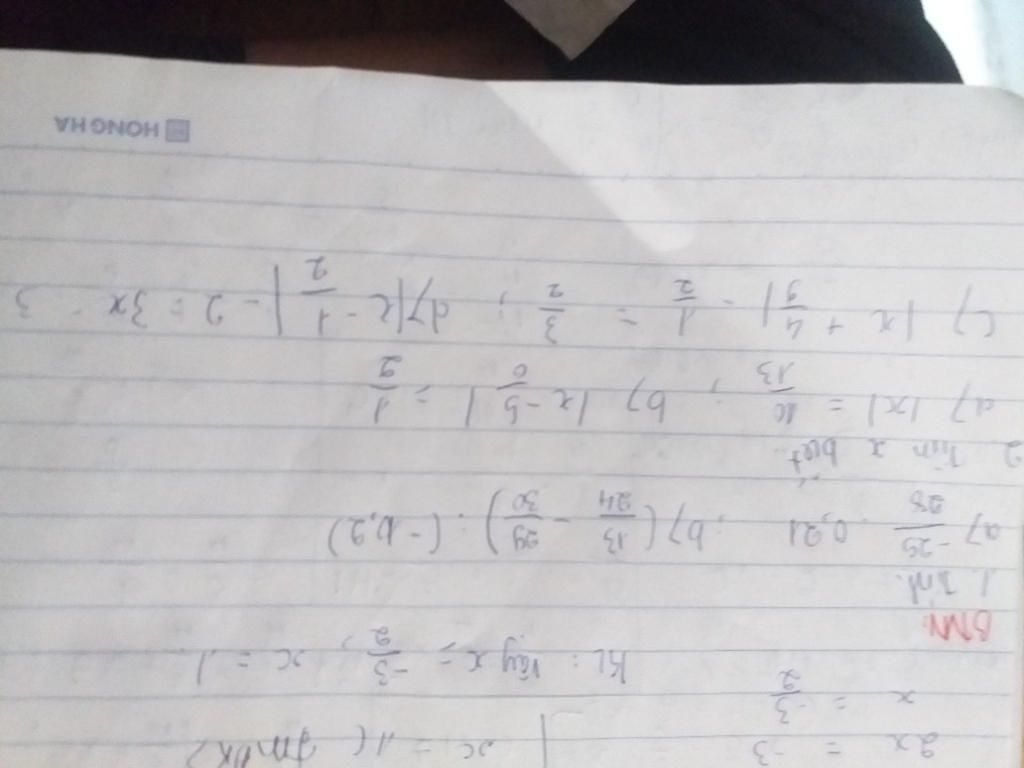 2x = -3 | x = 1 (TMĐK)
x = -3/2
KL: Vậy x = -3/2, x = 1.
BTVN:
1. Tính.
a) -25/28 . 0,21 ; b) (13/24 - 29/30) : (-1,2)
2. Tìm x biết
a) |x| = 10/13 ; b) |x - 5/6| = 1/2
c) |x + 4/9| - 1/2 = 3/2 ; d) |x - 1/2| - 2 = 3x - 3
HONG HA